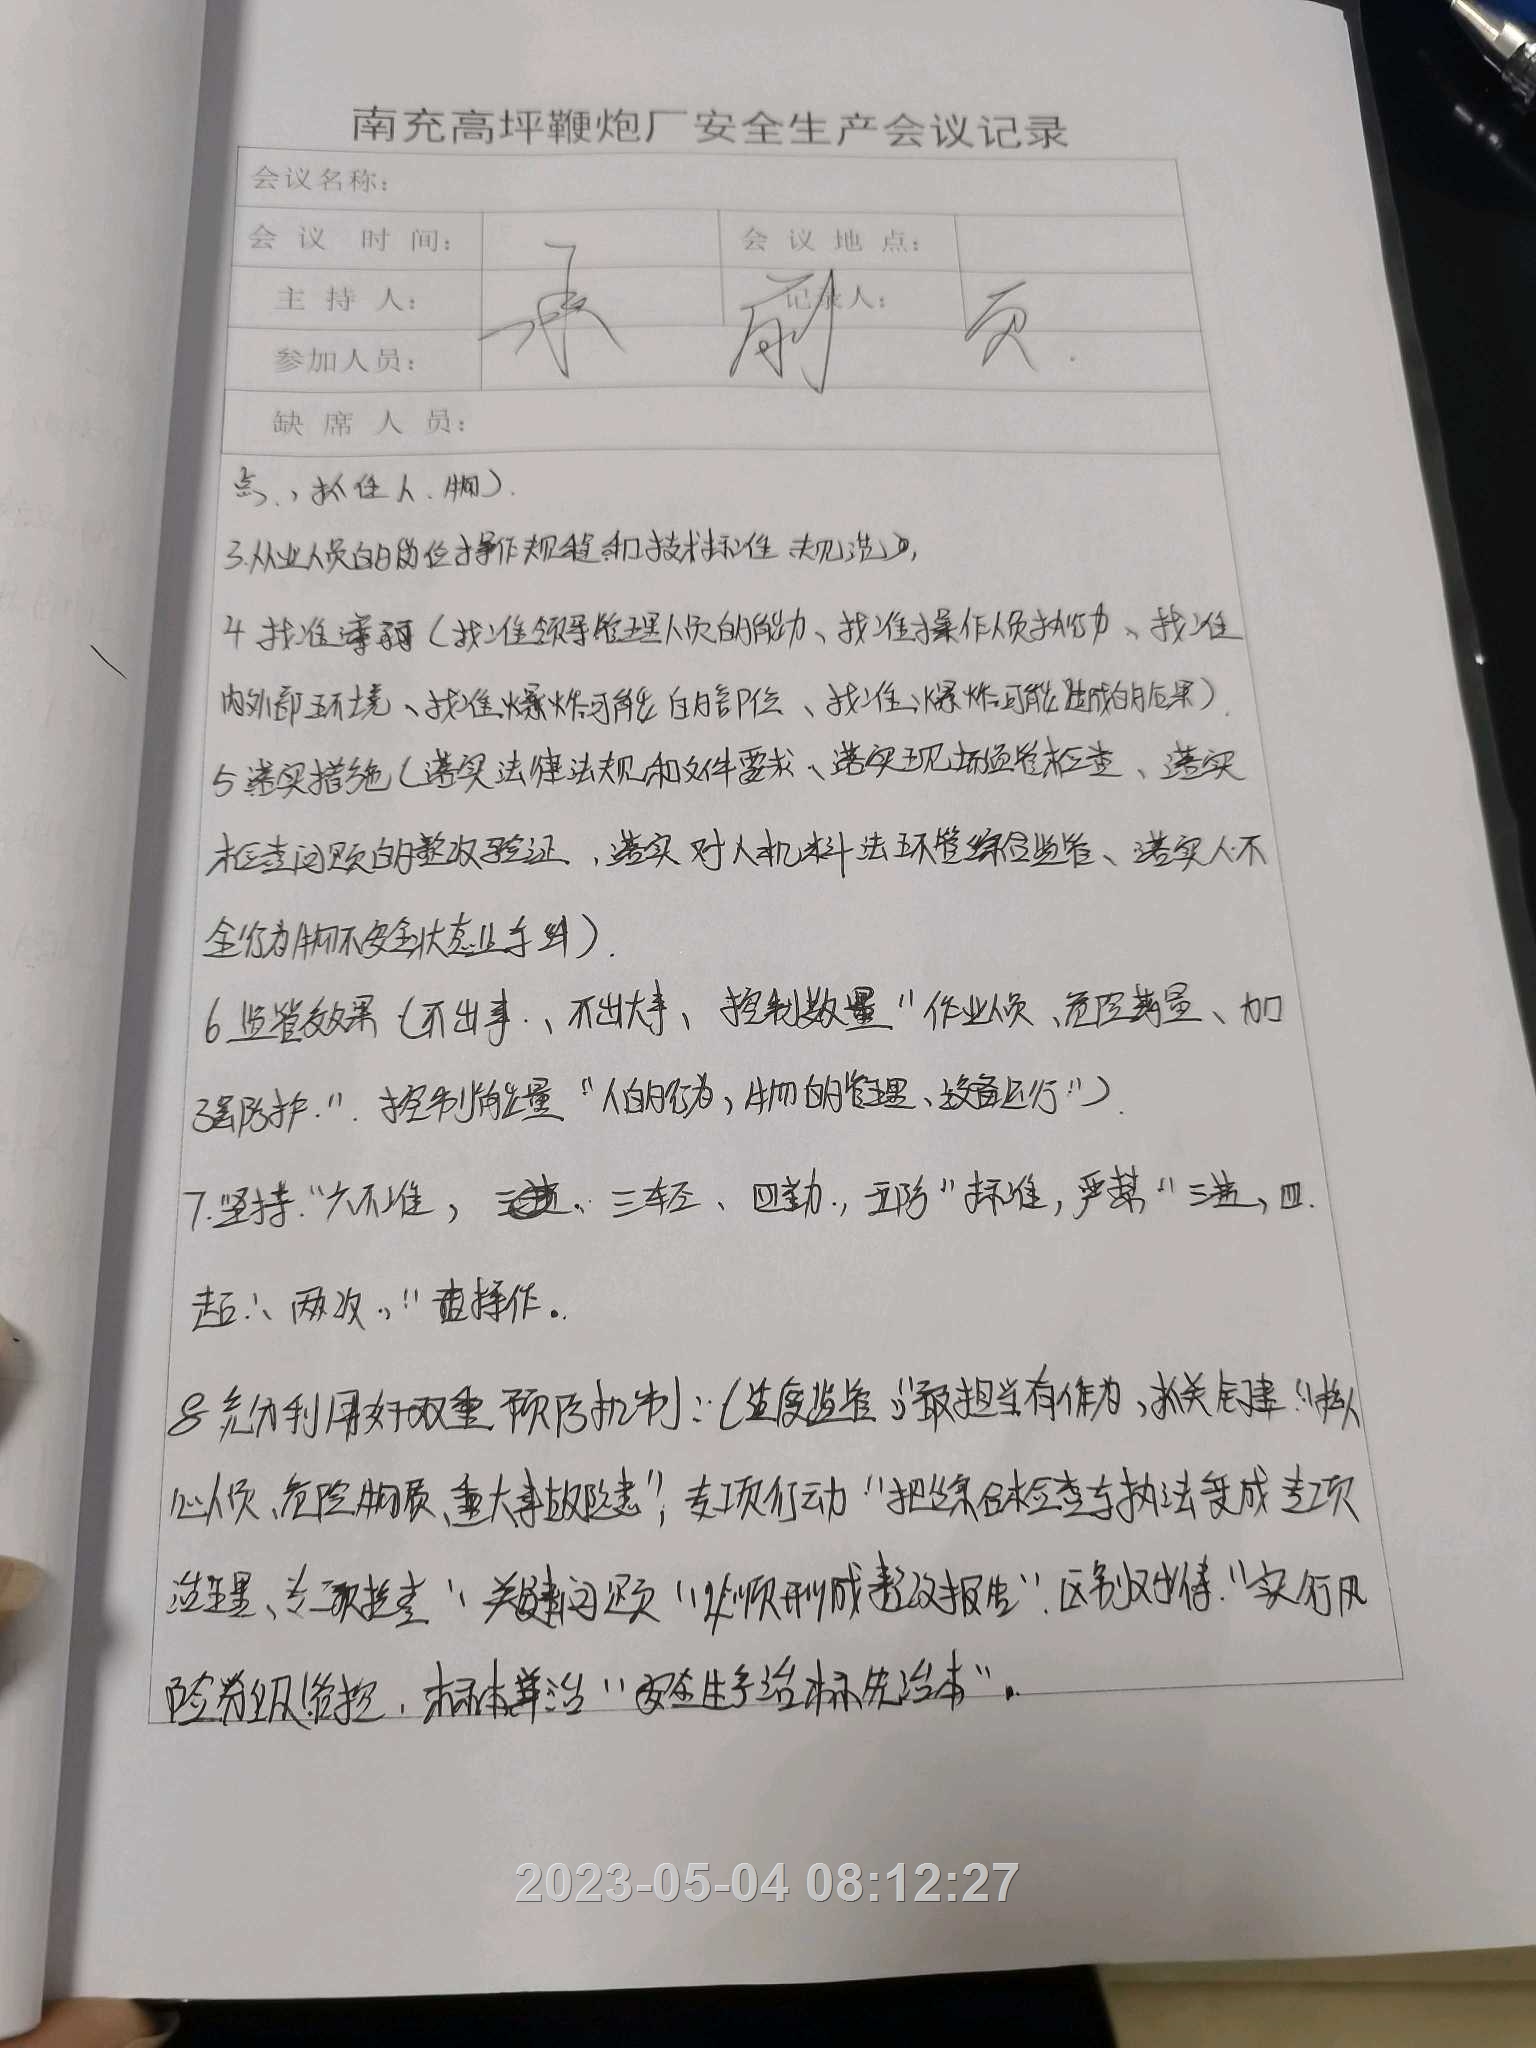 南充高坪鞭炮厂安全生产会议记录
会议名称：
会 议 时 间： 会 议 地 点：
主 持 人： 记录人：
承 前 页.
参加人员：
缺 席 人 员：
点、，抓住人、物）.
3.从业人员的岗位操作规程和技术标准、规范》,
4 找准薄弱（找准领导管理人员的能力、找准操作人员执行力、找准
内外部环境、找准爆炸可能的部位、找准爆炸可能造成的后果）.
5 落实措施（落实法律法规和文件要求、落实现场监管检查、落实
检查问题的整改验证、落实对人机料法环管综合监管、落实人不
全行为物不安全状态 手 ）.
6.监管效果（不出事、不出大事、控制数量"作业人员、危险药量、加
强防护". 控制能量"人的行为，物的管理、设备运行"）.
7.坚持"六不准， 三轻、四勤、五防"标准，严禁"三违，四.
超、两次，" 操作。
8 充分利用好双重预防机制：（ 度监管"敢担当有作为，抓关键"核
心人员、危险物质、重大事故隐患"，专项行动"把综合检查与执法变成专项
治理、专项检查"关键问题"
形成整改报告".区别对待."实行风
险分级管控，标本兼治"安全生产治标先治本".
2023-05-04 08:12:27